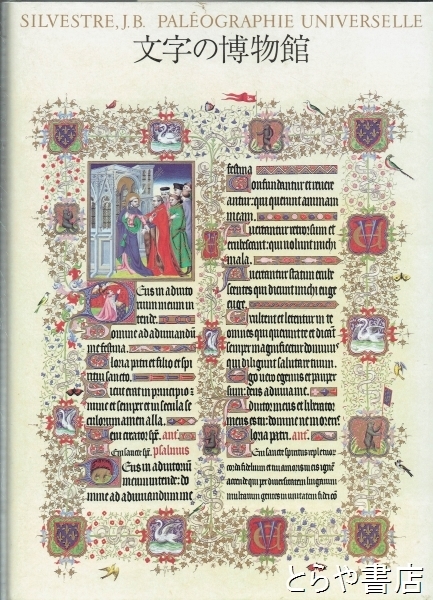 SILVESTRE, J.B. PALÉOGRAPHIE UNIVERSELLE
文字の博物館
festina
Confundantur et revere
antur: qui querunt animam
meam.
Avertantur retrorsum et
erubescant: qui volunt michi
mala.
Avertantur statim erube
scentes qui dicunt michi euge
euge.
Exultent et letentur in te
omnes qui querunt te et dicant
semper magnificetur dominus
qui diligunt salutare tuum.
Ego vero egenus et pauper
sum: deus adiuva me.
Adiutor meus et liberator
meus es tu: domine ne moreris
Gloria patri. ant.
Deus in adiuto
rium meum in
tende.
Domine ad adiuvandum
me festina.
Gloria patri et filio et spi
ritui sancto.
Sicut erat in principio z
nunc et semper et in secula se
culorum amen alla.
ant.
psalmus
Deus in adiutorium
meum intende: do
mine ad adiuvandum me
とらや書店